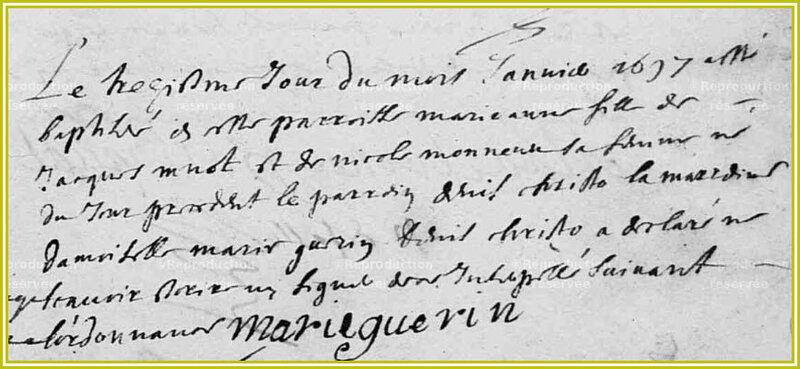 Le tregisme Jour du mois Janvier 1697 a esté
baptisée en cette parroisse marie anne fille de
Jacques muot et de nicole monneux sa femme ne
du Jour precedent le parrein denis christo la marreine
damoiselle marie guerin denis christo a declaré ne
scavoir escrire ny signer de ce Interpellé suivant
l'ordonnance Marie guerin